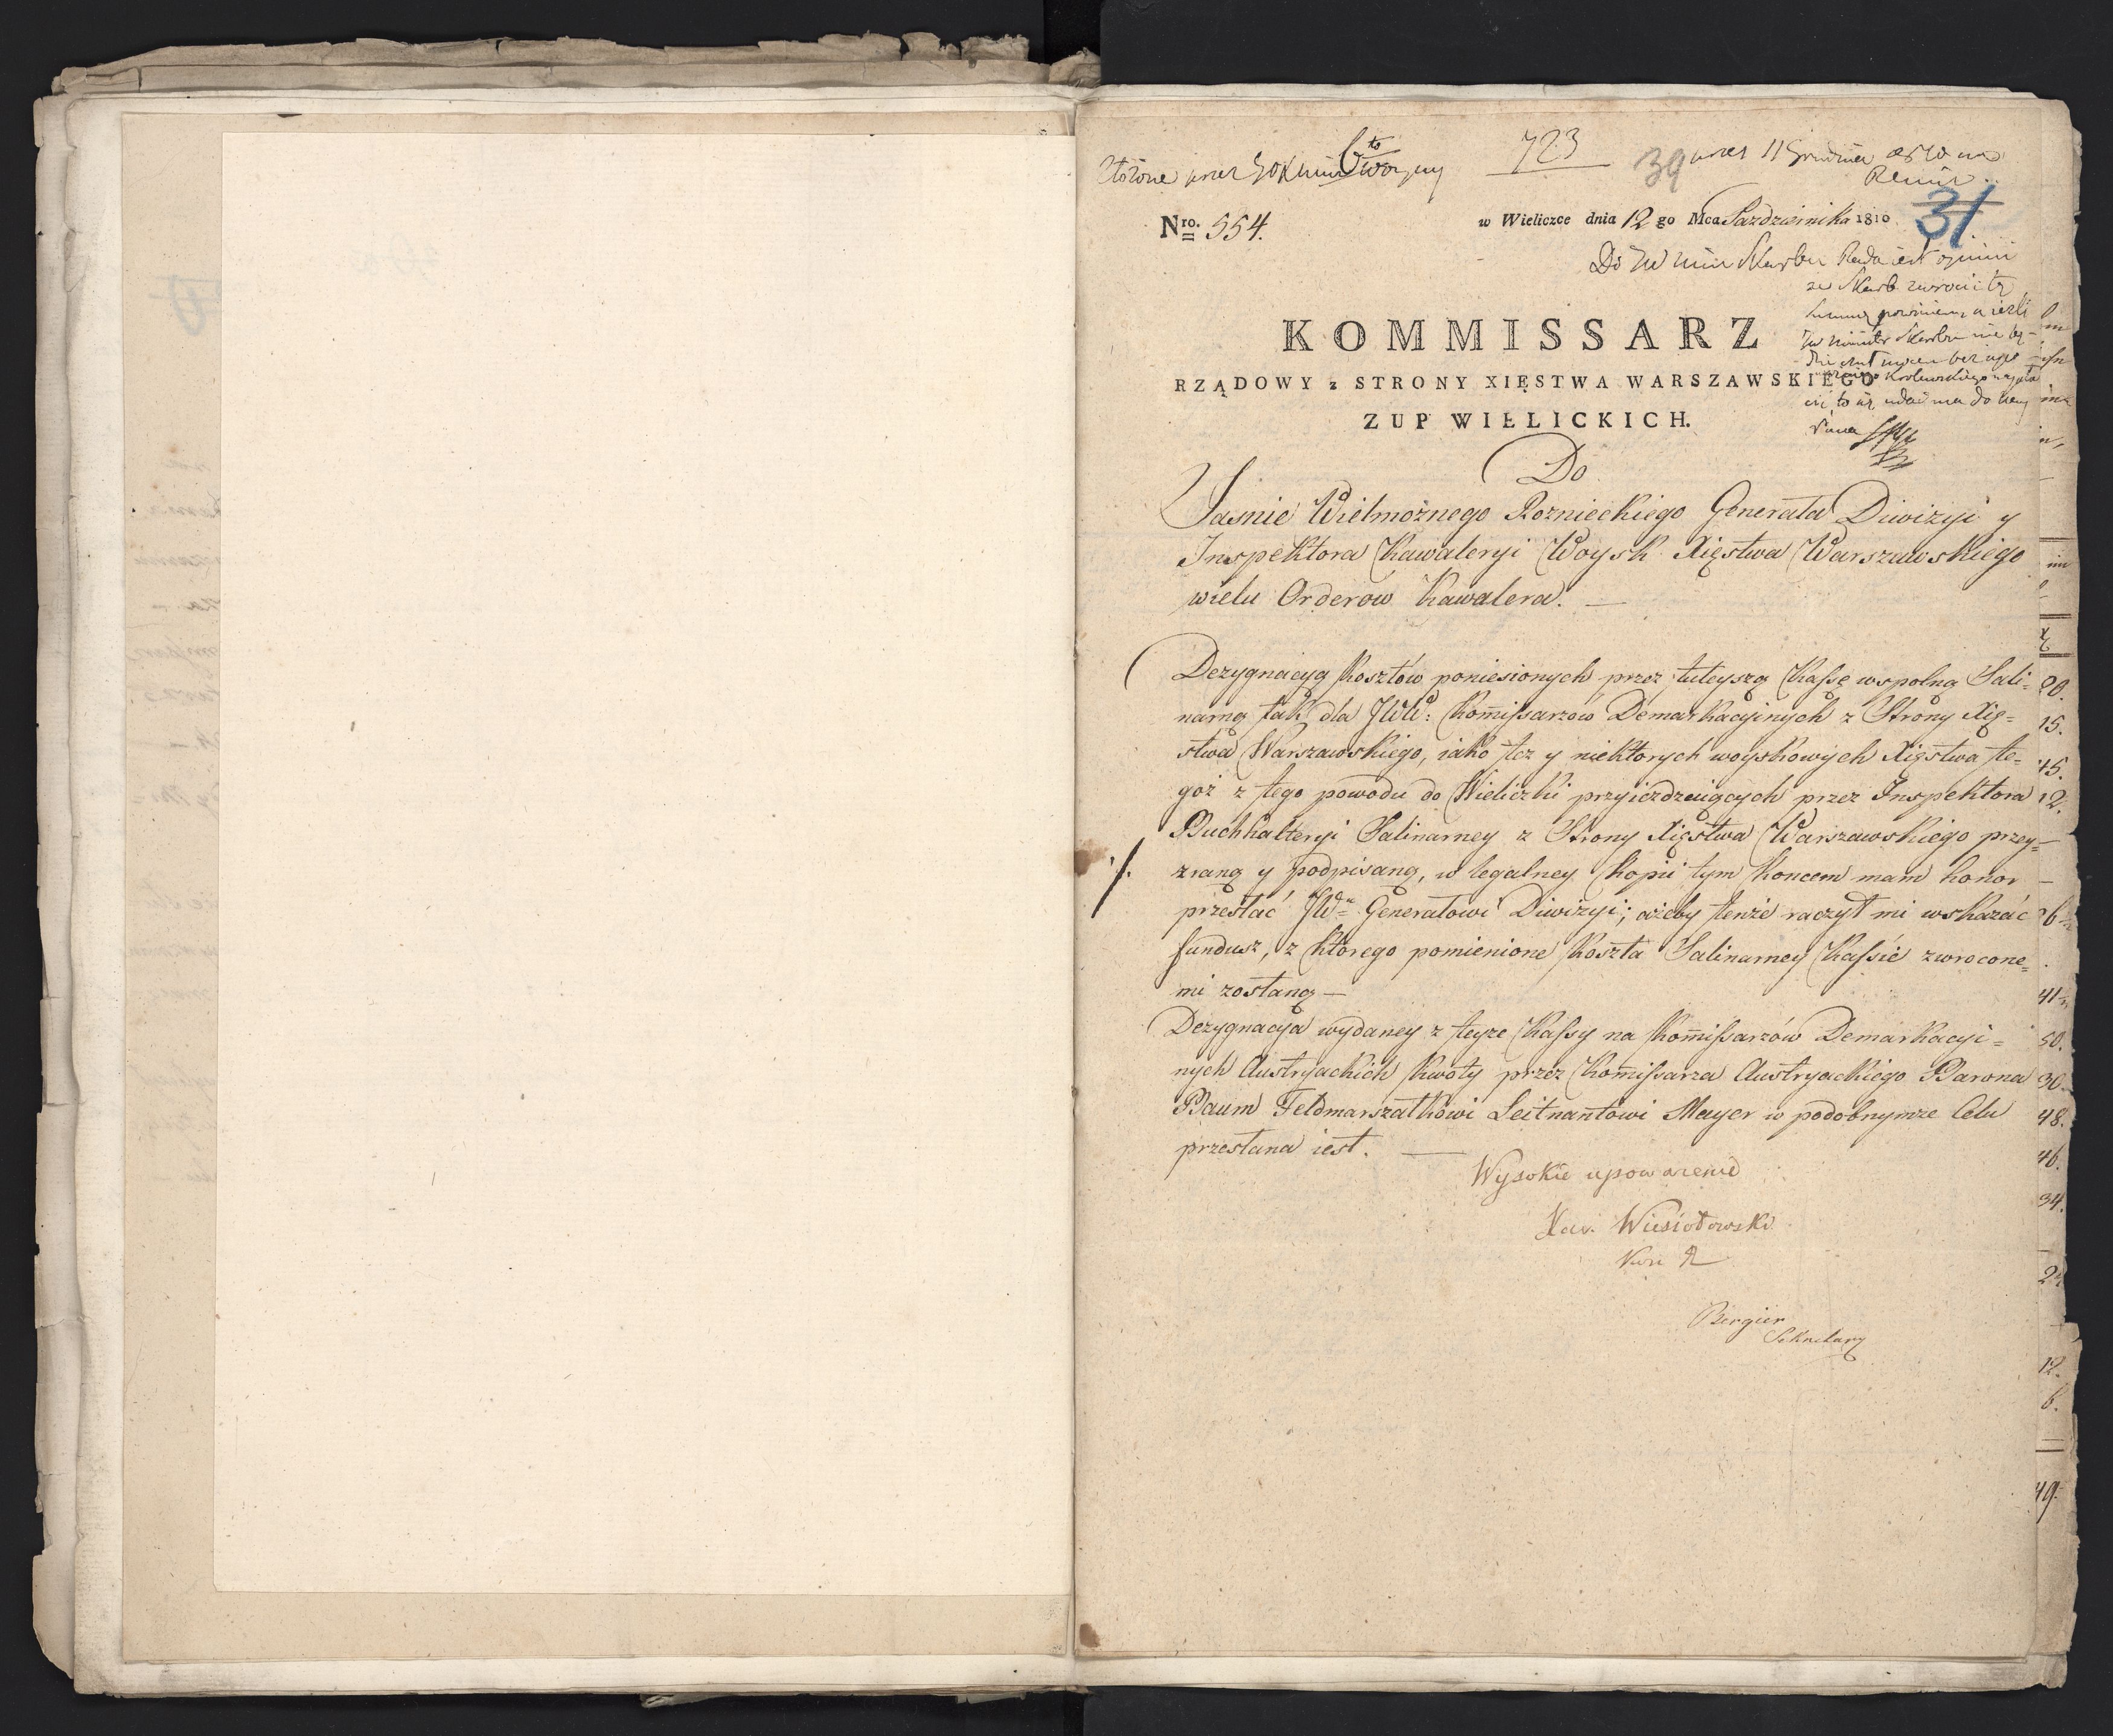 723
39
złożone przez
przez 11 Grudnia
Nro. 554.
w Wieliczce dnia 12 go Mca Pazdziernika 1810
31
Do JW Min Skarbu Rada iest opinii
ze Skarb zwrocić tę
Summę powinien, a ieżli
JW Ministr Skarbu nie bę-
Krolewskiego wypła
cić, to się udać ma do
KOMMISSARZ
RZĄDOWY z STRONY XIĘSTWA WARSZAWSKIEGO
ZUP WIELICKICH.
Do
Jasnie Wielmożnego Roznieckiego Generała Diwizyi y
Inspektora Kawaleryi Woysk Xięstwa Warszawskiego
wielu Orderow Kawalera. —
Dezygnacyą Kosztów poniesionych przez tuteyszą Kassę wspolną Sali=
narną tak dla JWW: Kom̄issarzow Demarkacyinych z Strony Xię=
stwa Warszawskiego, iako tez y niektorych woyskowych Xięstwa te=
goż z tego powodu do Wieliczki przyieżdzaiących przez Inspektora
Buchhalteryi Salinarney z Strony Xięstwa Warszawskiego przey=
·/. zraną y podpisaną, w legalney Kopii tym koncem mam honor
przesłać JWu Generałowi Diwizyi; ażeby tenże raczył mi wskazać
fundusz, z ktorego pomienione Koszta Salinarney Kassie zwrocone=
mi zostaną —
Dezygnacya wydaney z teyze Kassy na Kom̄issarzów Demarkacyi=
nych Austryackich Kwoty przez Kom̄issarza Austryackiego Barona
Baum Feldmarszałkowi Leitnantowi Mayer w podobnymze Celu
przesłana iest. —
Wysokie upowazenie
Xav. Wiesiołowski
Bergier
Sekretarz
20.
15.
45.
12.
50.
30.
48.
46.
34.
12.
6.
49.